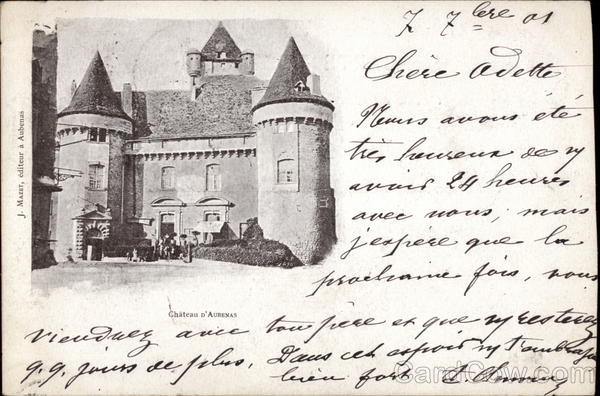 J. Mazet, éditeur à Aubenas
7 7bre 01
Chère Odette
Nous avons été
très heureux de
avoir 24 heures
avec nous, mais
j'espère que la
prochaine fois, vous
Château d'Aubenas
viendrez avec ton père et que resterez
q.q. jours de plus. Dans cet espoir
bien fort
CardCow.com